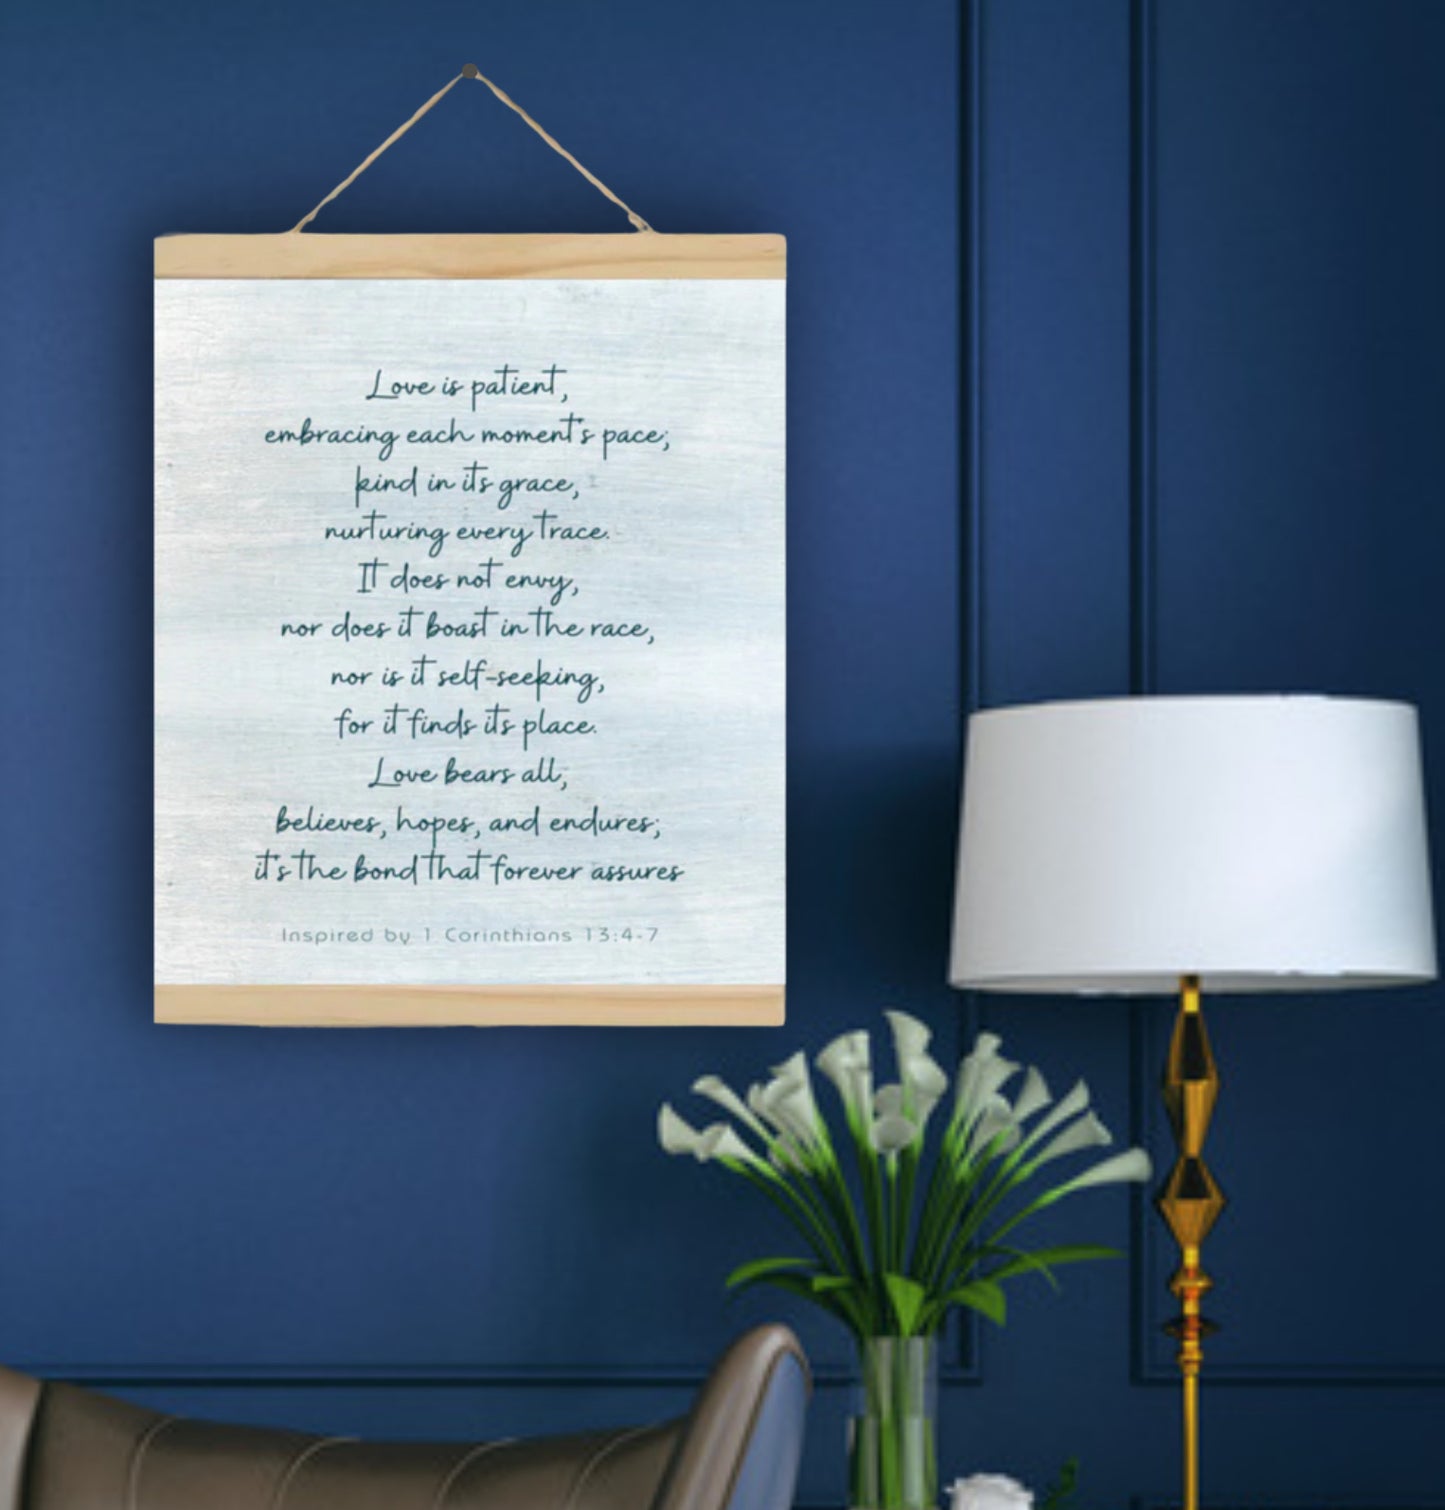 Love is patient,
embracing each moment's pace;
kind in its grace,
nurturing every trace.
It does not envy,
nor does it boast in the race,
nor is it self-seeking,
for it finds its place.
Love bears all,
believes, hopes, and endures;
it's the bond that forever assures
Inspired by 1 Corinthians 13:4-7